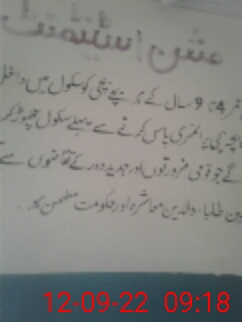 عمر 4 تا 9 سال کے ہر بچے بچی کو سکول میں داخل
بچہ بچی پرائمری پاس کرنے سے پہلے سکول چھوڑ کر
گے جو قومی ضرورتوں اور جدید دور کے تقاضوں سے
طلباء۔ والدین معاشرہ اور حکومت مطمئن
12-09-22 09:18